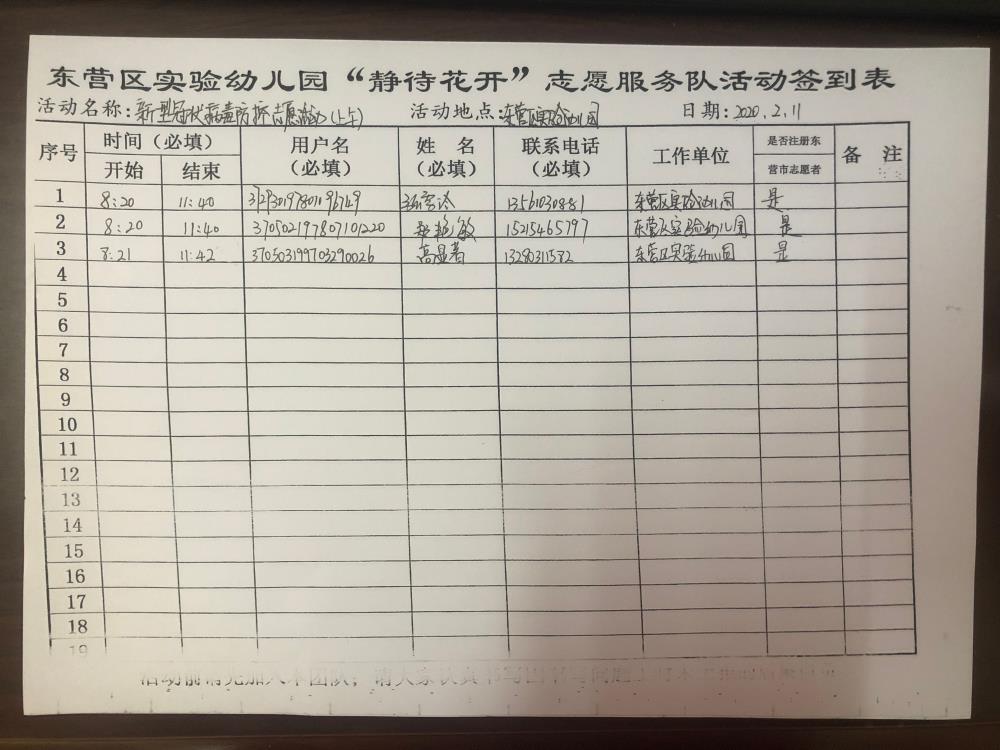 东营区实验幼儿园“静待花开”志愿服务队活动签到表
活动名称：新型冠状病毒防控志愿活动(上午) 活动地点：东营区实验幼儿园 日期：2020.2.11
序号 时间（必填） 用户名（必填） 姓 名（必填） 联系电话（必填） 工作单位 是否注册东营市志愿者 备 注
开始 结束
1 8:20 11:40 东营区实验幼儿园 是
2 8:20 11:40 370502197807101220 15215465797 东营区实验幼儿园 是
3 8:21 11:42 370503199703290026 高显著 东营区实验幼儿园 是
4
5
6
7
8
9
10
11
12
13
14
15
16
17
18
19
活动前请先加入本团队，请大家认真书写